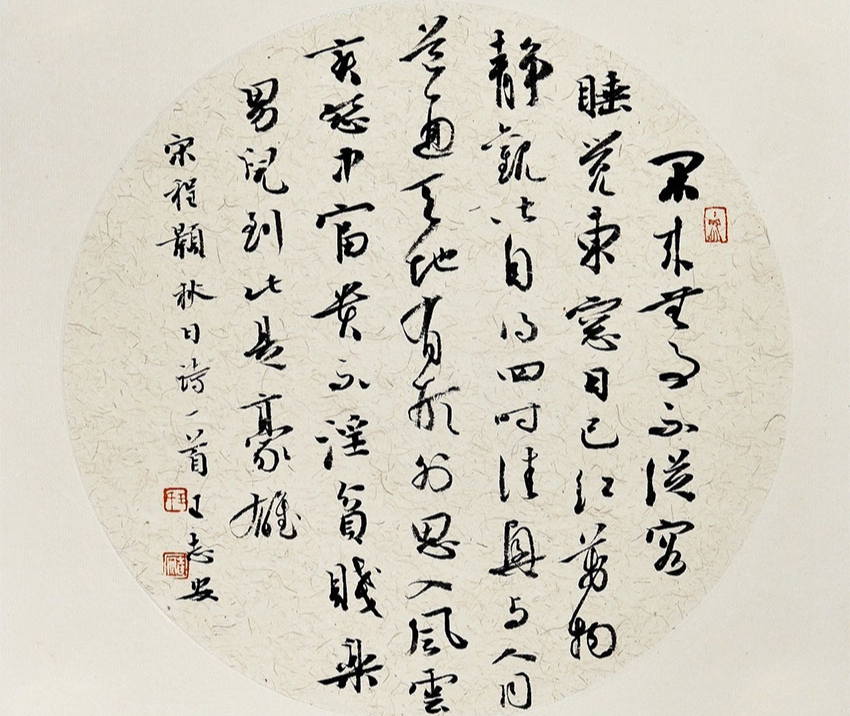 閑来無事不從容
睡覺東窓日已紅萬物
静觀皆自得四時佳興与人同
道通天地有形外思入風雲
變態中富貴不淫貧賤樂
男兒到此是豪雄
宋程顥秋日詩一首 王志安